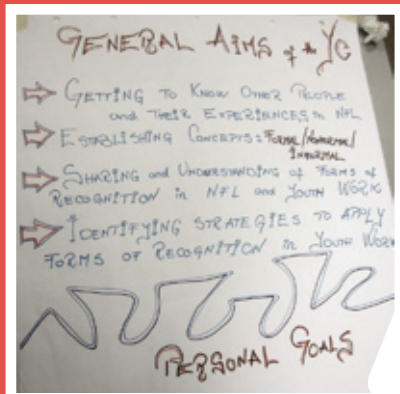 GENERAL AIMS of the YC
GETTING TO KNOW OTHER PEOPLE
and THEIR EXPERIENCES in NFL
ESTABLISHING CONCEPTS: FORMAL/NONFORMAL/
INFORMAL
SHARING and UNDERSTANDING of FORMS of
RECOGNITION in NFL and YOUTH WORK
IDENTIFYING STRATEGIES TO APPLY
FORMS OF RECOGNITION in YOUTH WORK
PERSONAL GOALS